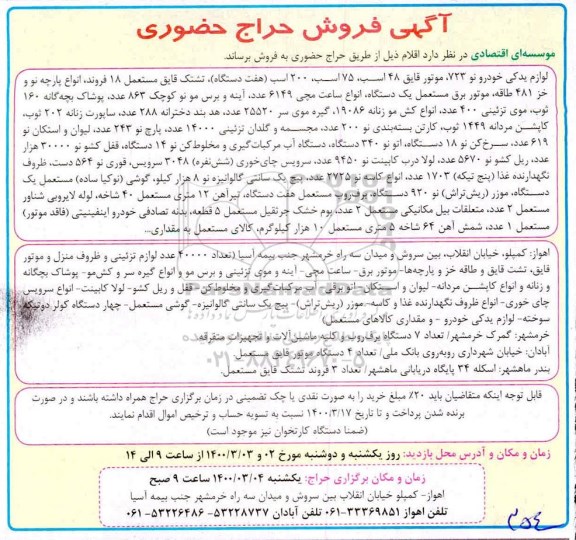 آگهی فروش حراج حضوری
موسسه‌ای اقتصادی در نظر دارد اقلام ذیل از طریق حراج حضوری به فروش برساند.
لوازم یدکی خودرو نو ۷۲۳، موتور قایق ۴۸ اسب، ۷۵ اسب، ۲۰۰ اسب (هفت دستگاه)، تشتک قایق مستعمل ۱۸ فروند، انواع پارچه نو و
خز ۴۸۱ طاقه، موتور برق مستعمل یک دستگاه، انواع ساعت مچی ۶۱۴۹ عدد، آینه و برس مو نو کوچک ۸۶۳ عدد، پوشاک بچه‌گانه ۱۶۰
ثوب، موی تزئینی ۴۰۰ عدد، انواع کش مو زنانه ۱۹۰۸۶، گیره موی سر ۲۵۵۲۰ عدد، هد بند دخترانه ۲۸۸ عدد، ساپورت زنانه ۲۰۲ ثوب،
کاپشن مردانه ۱۴۴۹ ثوب، کارتن بسته‌بندی نو ۲۰۰ عدد، مجسمه و گلدان تزئینی ۱۴۰۰۰ عدد، پارچ نو ۲۴۳ عدد، لیوان و استکان نو
۶۱۹ عدد، سرخ‌کن نو ۱۸ دستگاه، اتو نو ۳۴۰ دستگاه، دستگاه آب مرکبات‌گیری و مخلوط‌کن نو ۱۴ دستگاه، قفل کشو نو ۳۰۰۰۰ هزار
عدد، ریل کشو نو ۵۶۷۰ عدد، لولا درب کابینت نو ۹۴۵۰ عدد، سرویس چای‌خوری (شش‌نفره) ۳۰۴۸ سرویس، قوری نو ۵۶۴ دست، ظروف
نگهدارنده غذا (پنج تیکه) ۱۷۰۳ عدد، انواع کاسه نو ۲۷۲۵ عدد، پیچ یک سانتی گالوانیزه نو ۸ هزار کیلو، گوشی (نوکیا ساده) مستعمل یک
دستگاه، موزر (ریش‌تراش) نو ۹۲۰ دستگاه، برف‌روب مستعمل هفت دستگاه، تیرآهن ۱۲ متری مستعمل ۴۰ شاخه، لوله لایروبی شناور
مستعمل ۲ عدد، متعلقات بیل مکانیکی مستعمل ۲ عدد، بوم خشک جرثقیل مستعمل ۵ قطعه، بدنه تصادفی خودرو اینفینیتی (فاقد موتور)
مستعمل ۱ عدد، شمش آهن ۶۴ شاخه ۵ متری مستعمل ۱۰ هزار کیلوگرم، کالای مستعمل به مقداری...
اهواز: کمپلو، خیابان انقلاب، بین سروش و میدان سه راه خرمشهر جنب بیمه آسیا (تعداد ۴۰۰۰۰ عدد لوازم تزئینی و ظروف منزل و موتور
قایق، تشت قایق و طاقه خز و پارچه‌ها- موتور برق- ساعت مچی- آینه و موی تزئینی و برس مو و انواع گیره سر و کش‌مو- پوشاک بچگانه
و زنانه و انواع کاپشن مردانه- لیوان و استکان- اتو برقی- آب مرکبات‌گیری و مخلوط‌کن- قفل و ریل کشو- لولا کابینت- انواع سرویس
چای خوری- انواع ظروف نگهدارنده غذا و کاسه- موزر (ریش‌تراش)- پیچ یک سانتی گالوانیزه- گوشی مستعمل- چهار دستگاه کولر دوتیکه
سوخته- لوازم یدکی خودرو - و مقداری کالاهای مستعمل)
خرمشهر: گمرک خرمشهر/ تعداد ۷ دستگاه برف‌روب و کلیه ماشین‌آلات و تجهیزات متفرقه
آبادان: خیابان شهرداری روبه‌روی بانک ملی/ تعداد ۴ دستگاه موتور قایق مستعمل
بندر ماهشهر: اسکله ۳۴ پایگاه دریابانی ماهشهر/ تعداد ۳ فروند تشتک قایق مستعمل.
۰۲۱-۸۸۳۴۹۶۷۰-۵
قابل توجه اینکه متقاضیان باید ۲۰٪ مبلغ خرید را به صورت نقدی یا چک تضمینی در زمان برگزاری حراج همراه داشته باشند و در صورت
برنده شدن پرداخت و تا تاریخ ۱۴۰۰/۳/۱۷ نسبت به تسویه حساب و ترخیص اموال اقدام نمایند.
(ضمنا دستگاه کارتخوان نیز موجود است)
زمان و مکان و آدرس محل بازدید: روز یکشنبه و دوشنبه مورخ ۰۲ و ۱۴۰۰/۳/۰۳ از ساعت ۹ الی ۱۴
زمان و مکان برگزاری حراج: یکشنبه ۱۴۰۰/۰۳/۰۴ ساعت ۹ صبح
اهواز- کمپلو خیابان انقلاب بین سروش و میدان سه راه خرمشهر جنب بیمه آسیا
تلفن اهواز ۳۳۳۶۹۸۵۱-۰۶۱ تلفن آبادان ۵۳۲۲۸۷۳۷- ۵۳۲۲۶۴۸۶-۰۶۱